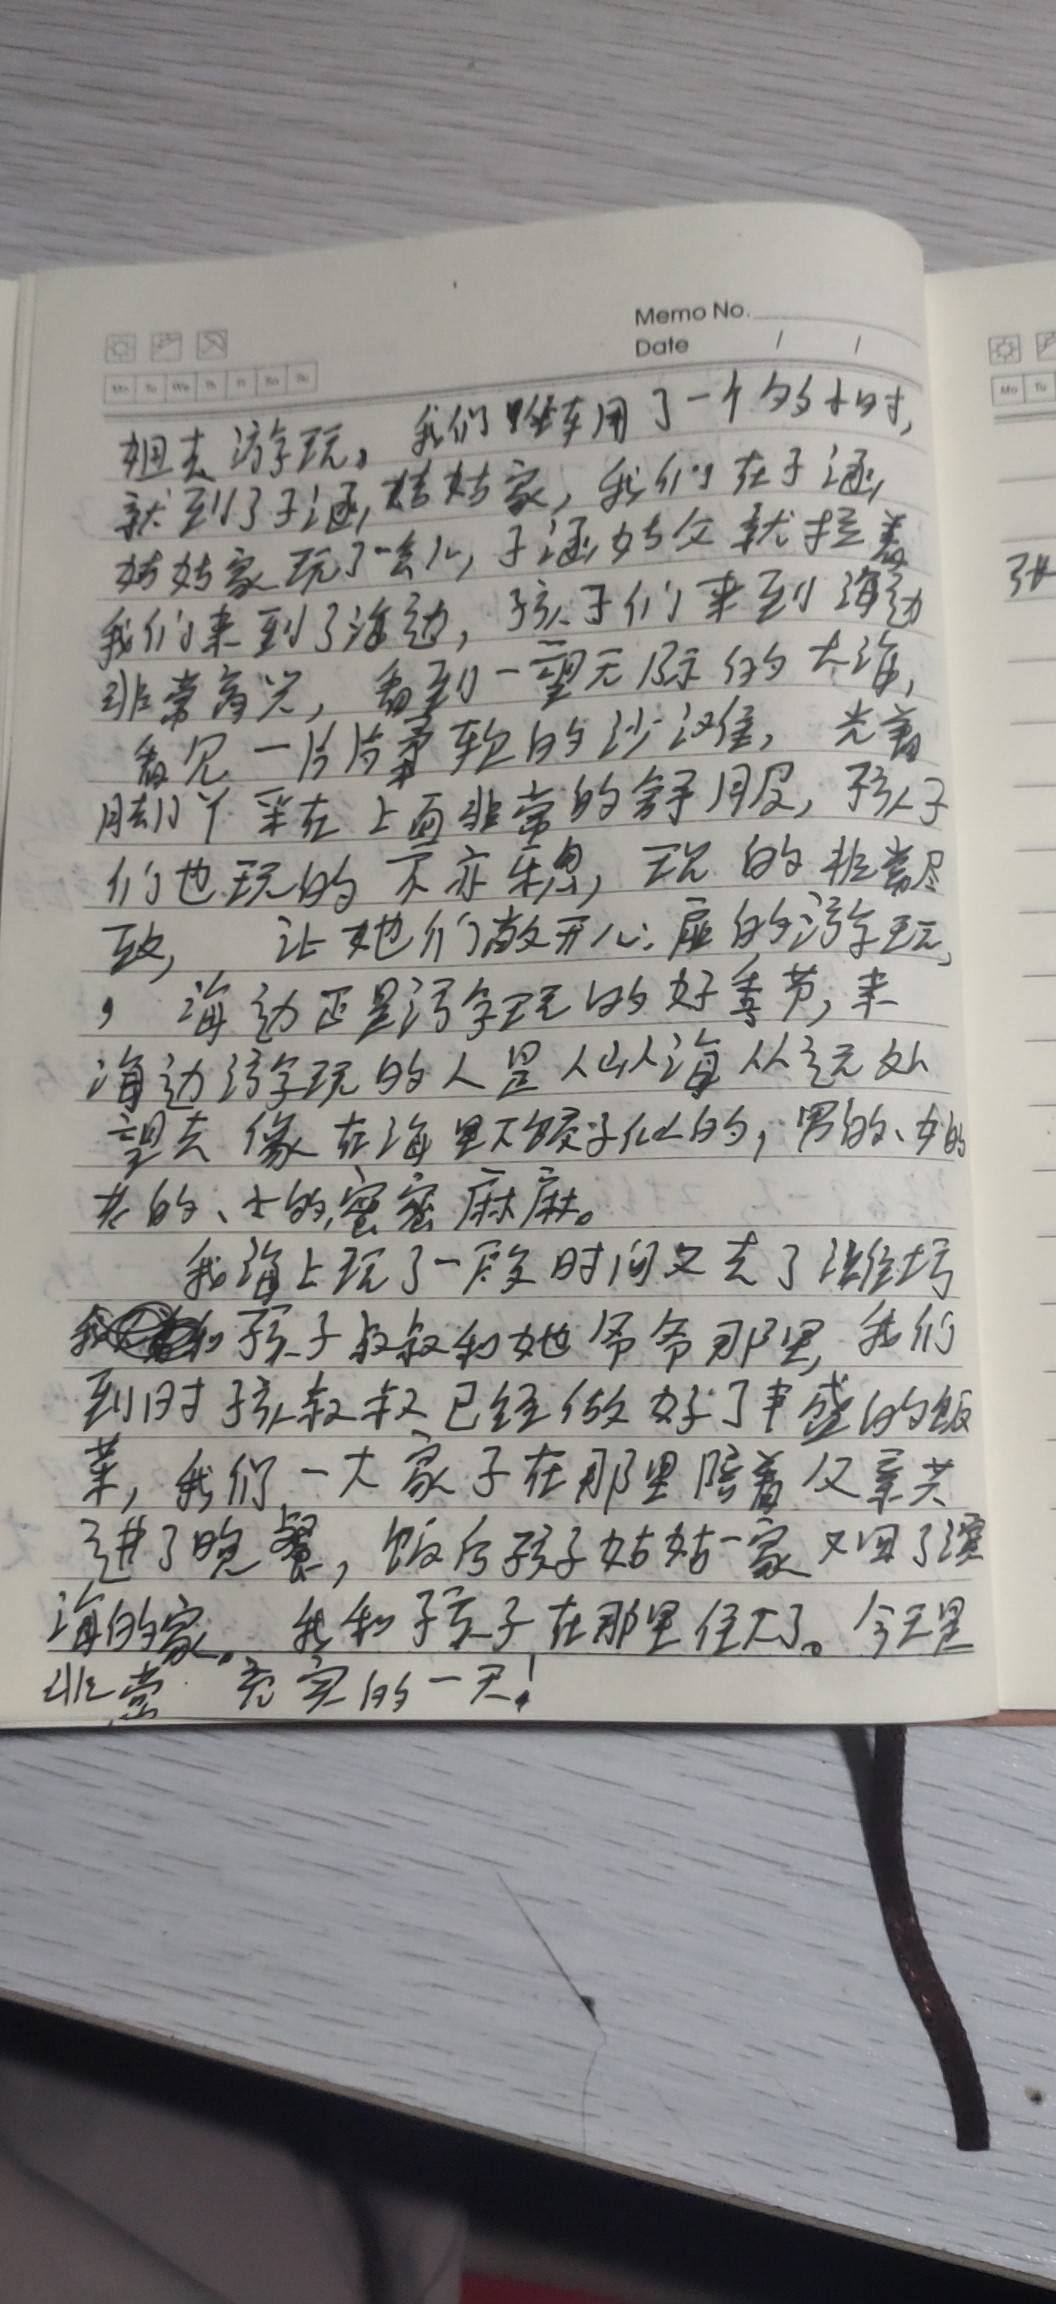 Memo No.
Date / /
Mo Tu We Th Fr Sa Su
Mo Tu
姐去游玩。我们坐车用了一个多小时,
就到了子涵姑姑家,我们在子涵
姑姑家玩了一会儿,子涵姑父就拉着
我们来到了海边,孩子们来到海边
非常高兴,看到一望无际的大海,
看见一片片柔软的沙滩,光着
脚丫踩在上面非常的舒服,孩子
们也玩的不亦乐乎,玩的非常尽
致,让她们敞开心扉的游玩,
,海边正是游玩的好季节,来
海边游玩的人是人山人海从远处
望去像在海里下饺子似的,男的、女的
老的、小的,密密麻麻。
我海上玩了一段时间又去了潍坊
我和孩子叔叔和她爷爷那里,我们
到时孩叔叔已经做好了丰盛的饭
菜,我们一大家子在那里陪着父亲共
进了晚餐,饭后孩子姑姑一家又回了滨
海的家。我和孩子在那里住下了。今天是
非常充实的一天!
张